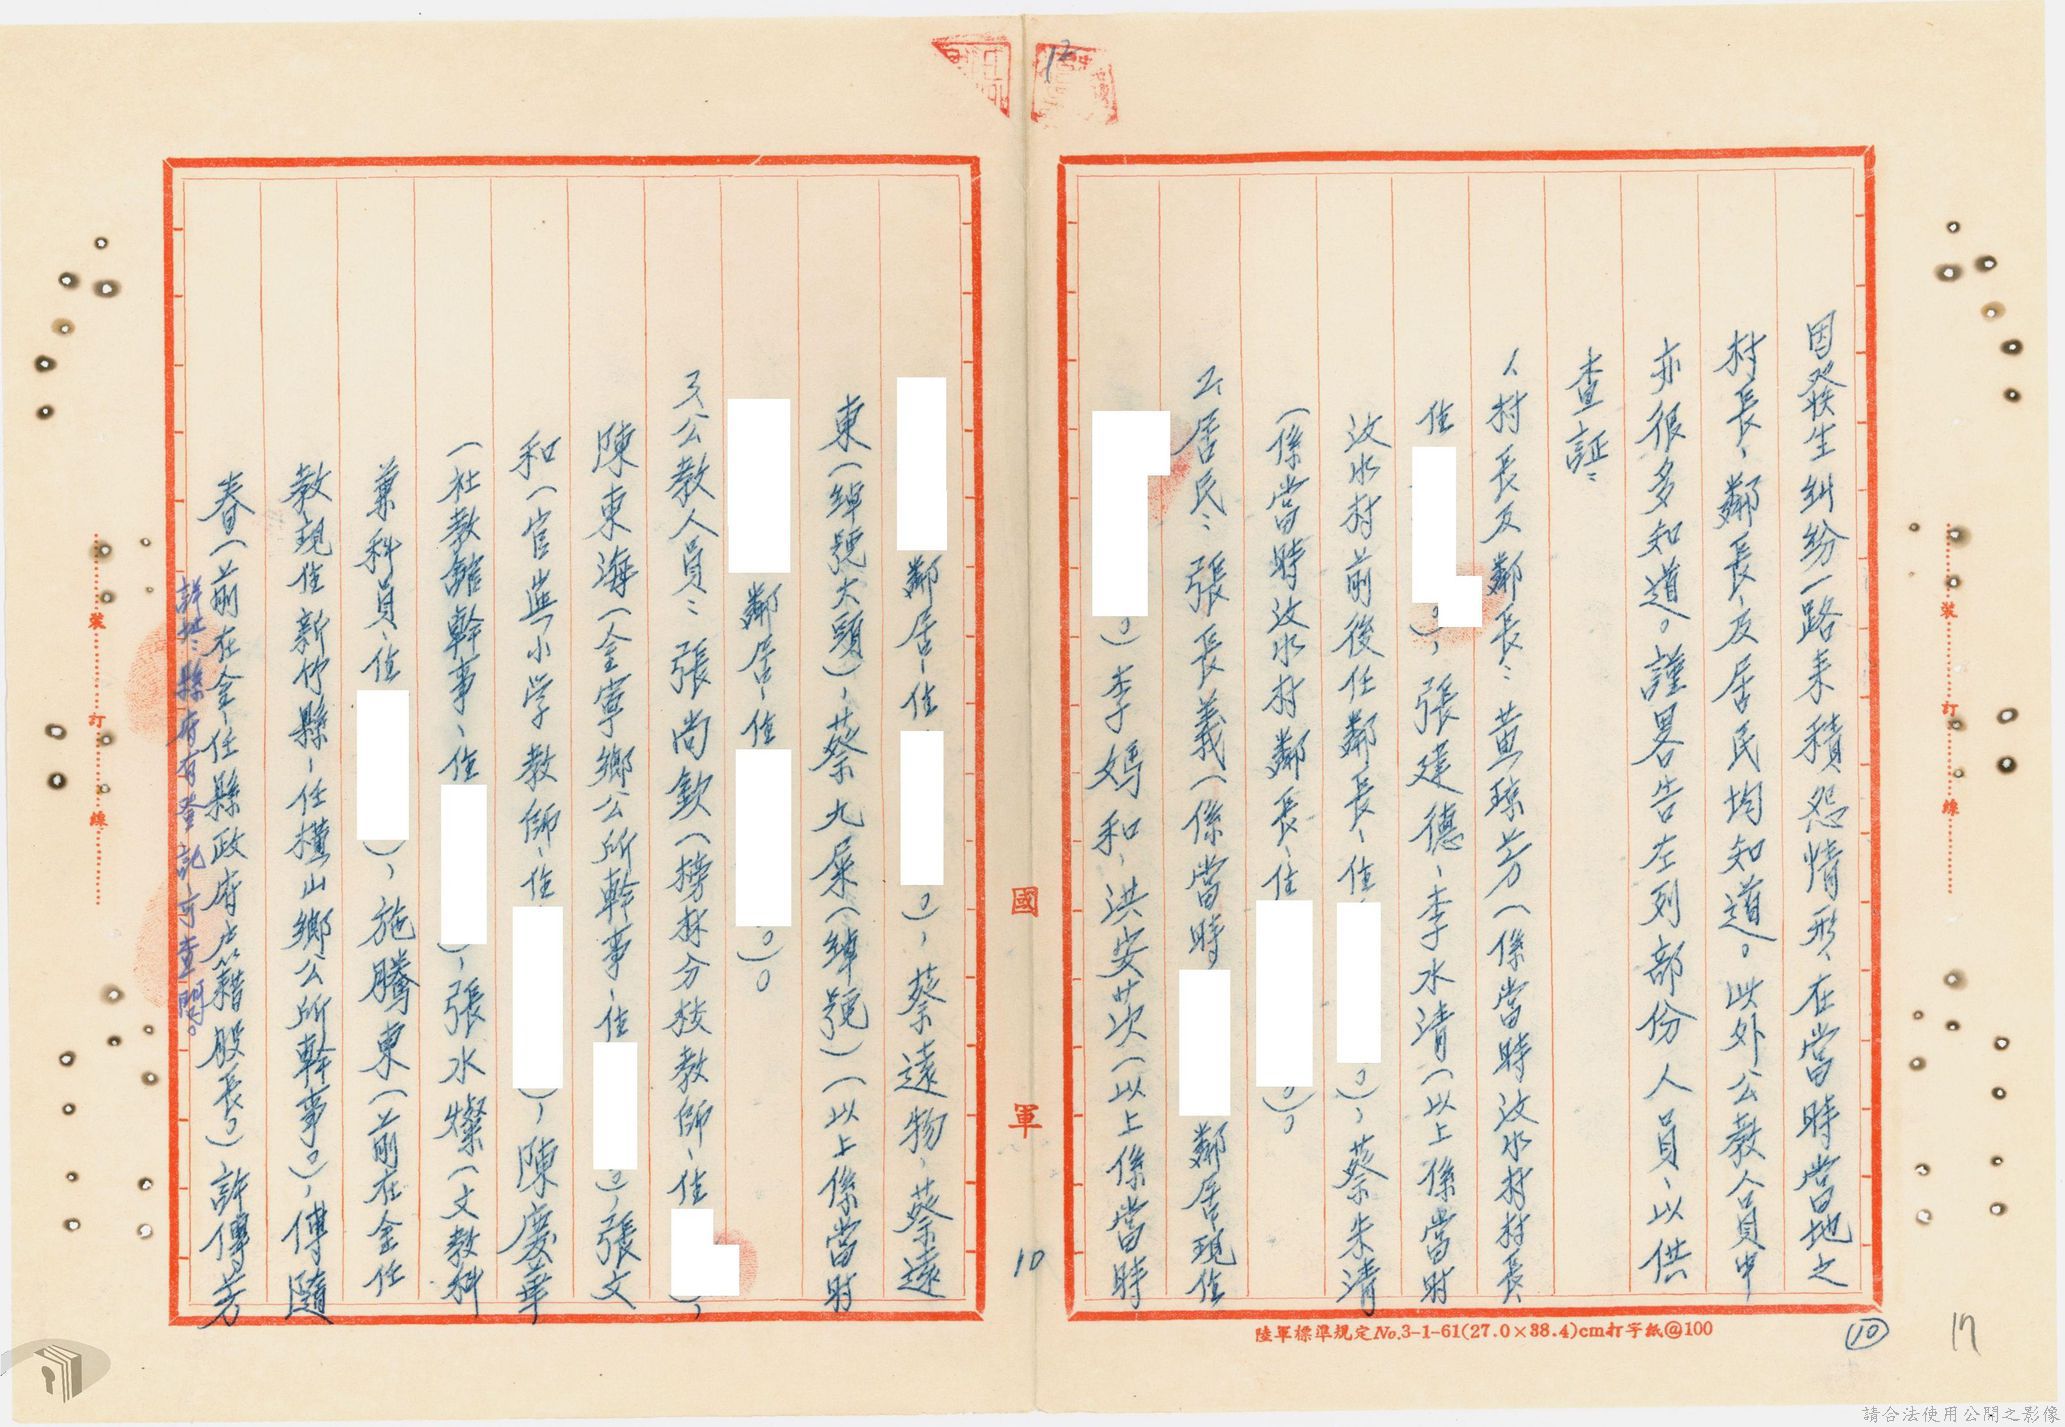 因發生糾紛一路来積怨情形、在當時當地之
村長、鄰長、及居民均知道。此外公教人員中
亦很多知道。謹畧告左列部份人員、以供
查証:
1.村長及鄰長:黄琼芳(係當時汶水村村長
住 。),張建德、李水清(以上係當时
汶水村前後任鄰長、住 。),蔡朱清
(係當時汶水村鄰長、住 。)。
2.居民:張長義(係當時 鄰居現住
。)李媽和、洪安茨(以上係當時
鄰居、住 。),蔡遠物、蔡遠
東(綽號大頭),蔡九屎(綽號)(以上係當时
鄰居、住 。)。
3.公教人員:張尚欽(榜林分校教師、住 ),
陳東海(金寧鄉公所幹事、住 。),張文
和(官岙小学教師、住 ),陳慶華
(社教館幹事、住 ),張水燦(文教科
兼科員、住 ),施騰東(前在金任
教現住新竹縣、任橫山鄉公所幹事。),傅隨
春(前在金、任縣政府户籍股長。)許傳芳
詳址:縣府有登記可查閱。
國軍
10
12
裝 訂 線
裝 訂 線
陸軍標準規定No.3-1-61(27.0×38.4)cm打字紙@100
10
17
請合法使用公開之影像